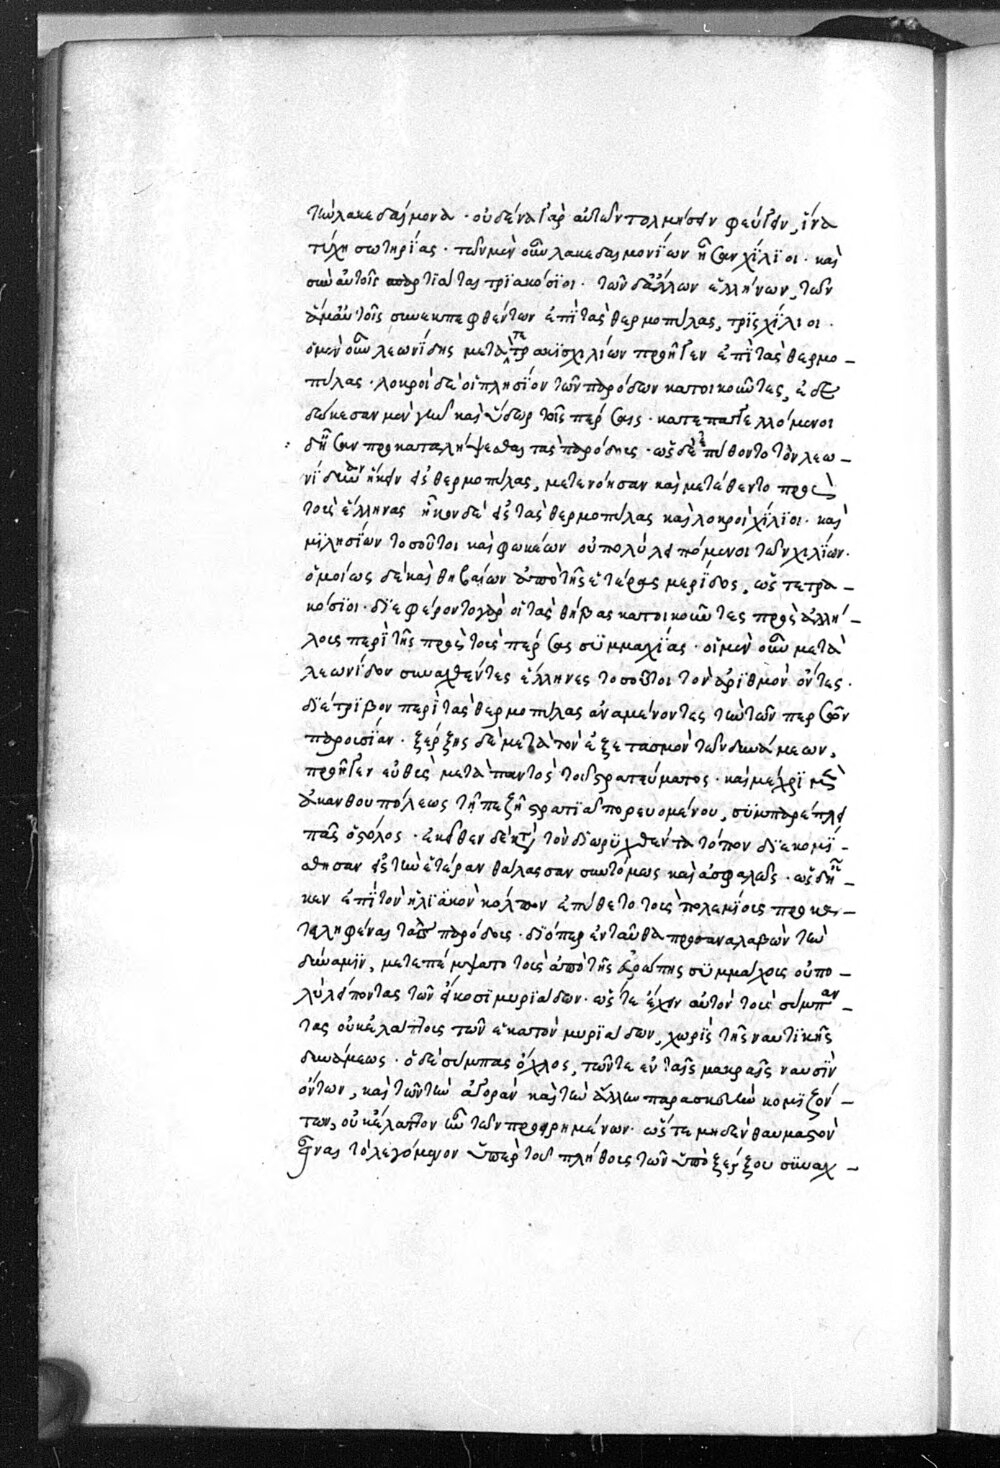 τὴν λακεδαίμονα · οὐδένα γὰρ αὐτῶν τολμήσειν φεύγειν, ἵνα
τύχῃ σωτηρίας · τῶν μὲν οὖν λακεδαιμονίων ἦσαν χίλϊοι · καὶ
σὺν αὐτοῖς σπαρτιᾶται τρϊακόσϊοι · τῶν δ' ἄλλων ἑλλήνων, τῶν
ἅμ' αὐτοῖς συνεκπεφθέντων ἐπὶ τὰς θερμοπύλας, τρϊσχίλιοι ·
ὁ μὲν οὖν λεωνίδης μετὰ τετρακισχιλίων προῆγεν ἐπὶ τὰς θερμο-
πύλας · λοκροὶ δὲ οἱ πλησίον τῶν παρόδων κατοικοῦντες, ἐδε
δώκεσαν μὲν γῆν καὶ ὕδωρ τοῖς πέρσαις · κατεπαγγελλόμενοι
δ' ἦσαν προκαταλήψεσθαι τὰς παρόδους · ὡς δὲ ἐπύθοντο τὸν λεω-
νίδην ἥκειν εἰς θερμοπύλας, μετενόησαν καὶ μετέθεντο πρὸς
τοὺς ἕλληνας ἧκον δὲ εἰς τὰς θερμοπύλας καὶ λοκροὶ χίλϊοι · καὶ
μϊλησίων τοσοῦτοι καὶ φωκέων οὐ πολὺ λειπόμενοι τῶν χιλίων ·
ὁμοίως δὲ καὶ θηβαίων ἀπὸ τῆς ἑτέρας μερίδος, ὡς τετρα-
κόσϊοι · διεφέροντο γὰρ οἱ τὰς θήβας κατοικοῦντες πρὸς ἀλλή-
λους περὶ τῆς πρὸς τοὺς πέρσας συμμαχίας · οἱ μὲν οὖν μετὰ
λεωνίδου συναχθέντες ἕλληνες τοσοῦτοι τὸν ἀριθμὸν ὄντες ·
διέτριβον περὶ τὰς θερμοπύλας ἀναμένοντες τὴν τῶν περσῶν
παρουσίαν · ξέρξης δὲ μετὰ τὸν ἐξετασμὸν τῶν δυνάμεων,
προῆγεν εὐθὺς μετὰ παντὸς τοῦ στρατεύματος · καὶ μέχρϊ μὲν
ἀκάνθου πόλεως τῇ πεζῇ στρατιᾷ πορευομένου, συμπαρέπλει
πᾶς ὁ στόλος · ἐκεῖθεν δὲ κατὰ τὸν διωρυχθέντα τόπον διεκομί-
σθησαν εἰς τὴν ἑτέραν θάλασσαν συντόμως καὶ ἀσφαλῶς · ὡς δ' ἧ-
κεν ἐπὶ τὸν ηλϊακὸν κόλπον ἐπύθετο τοὺς πολεμίους προκα-
τειληφέναι τὰς παρόδους · διόπερ ἐνταῦθα προσαναλαβὼν τὴν
δύναμϊν, μετεπέμψατο τοὺς ἀπὸ τῆς εὐρώπης συμμάχους οὐ πο-
λὺ λείποντας τῶν εἴκοσϊ μυριάδων · ὥστε ἔχειν αὐτὸν τοὺς σύμπαν-
τας οὐκ ἐλάττους τῶν ἑκατὸν μυριάδων, χωρὶς τῆς ναυτικῆς
δυνάμεως · ὁ δὲ σύμπας ὄχλος, τῶν τε ἐν ταῖς μακραῖς ναυσὶν
ὄντων, καὶ τῶν τὴν ἀγορὰν καὶ τὴν ἄλλην παρασκευὴν κομιζόν-
των, οὐκ ἔλαττον ἦν τῶν προειρημένων · ὥστε μηδὲν θαυμαστὸν
εἶναι τὸ λεγόμενον ὑπὲρ τοῦ πλήθους τῶν ὑπὸ ξέρξου συναχ-